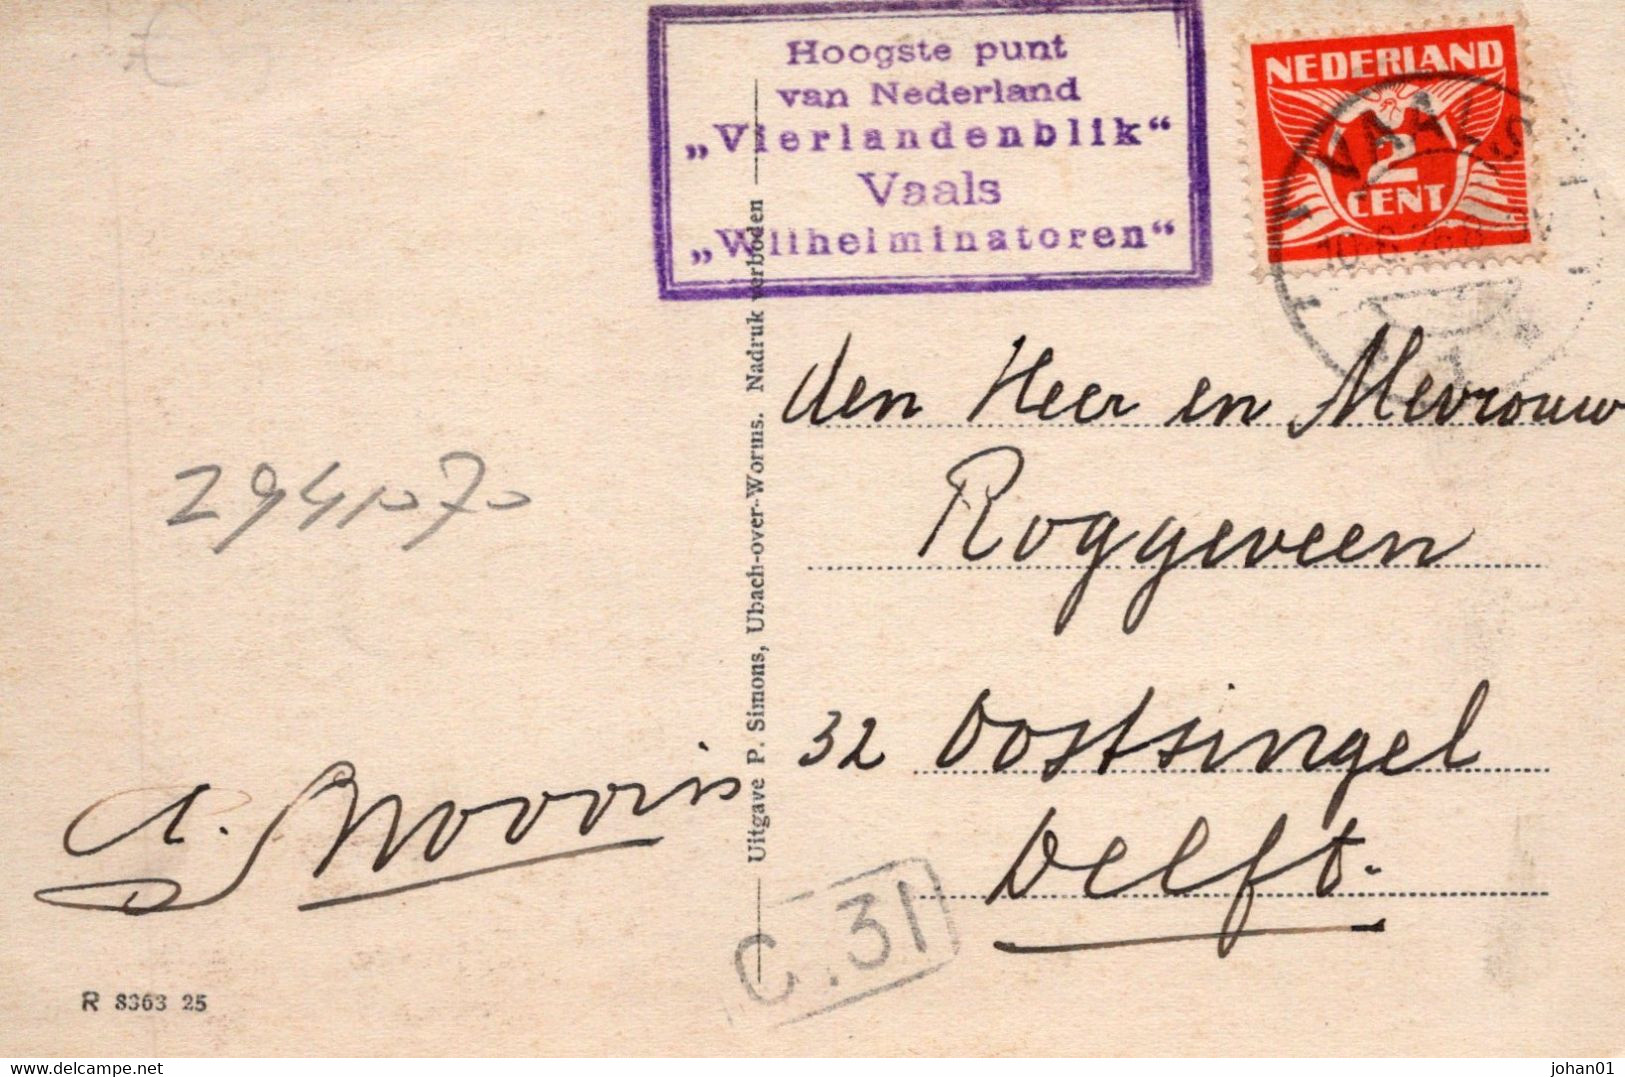 Hoogste punt
van Nederland
„Vierlandenblik“
Vaals
„Wilhelminatoren“
NEDERLAND
2
CENT
VAALS
den Heer en Mevrouw
Roggeveen
32 Oostsingel
Delft.
Uitgave P. Simons, Ubach-over-Worms. Nadruk verboden
C.31
R 8363 25
delcampe.net
johan01